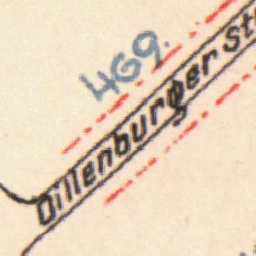 469.
Dillenburger Str